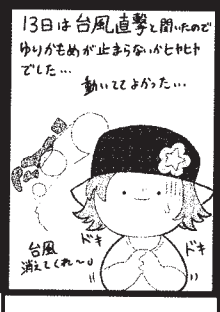 13日は台風直撃と聞いたので
ゆりかもめが止まらないかヒヤヒヤ
でした…
動いててよかった…
台風
消えてくれ〜
ドキ
ドキ